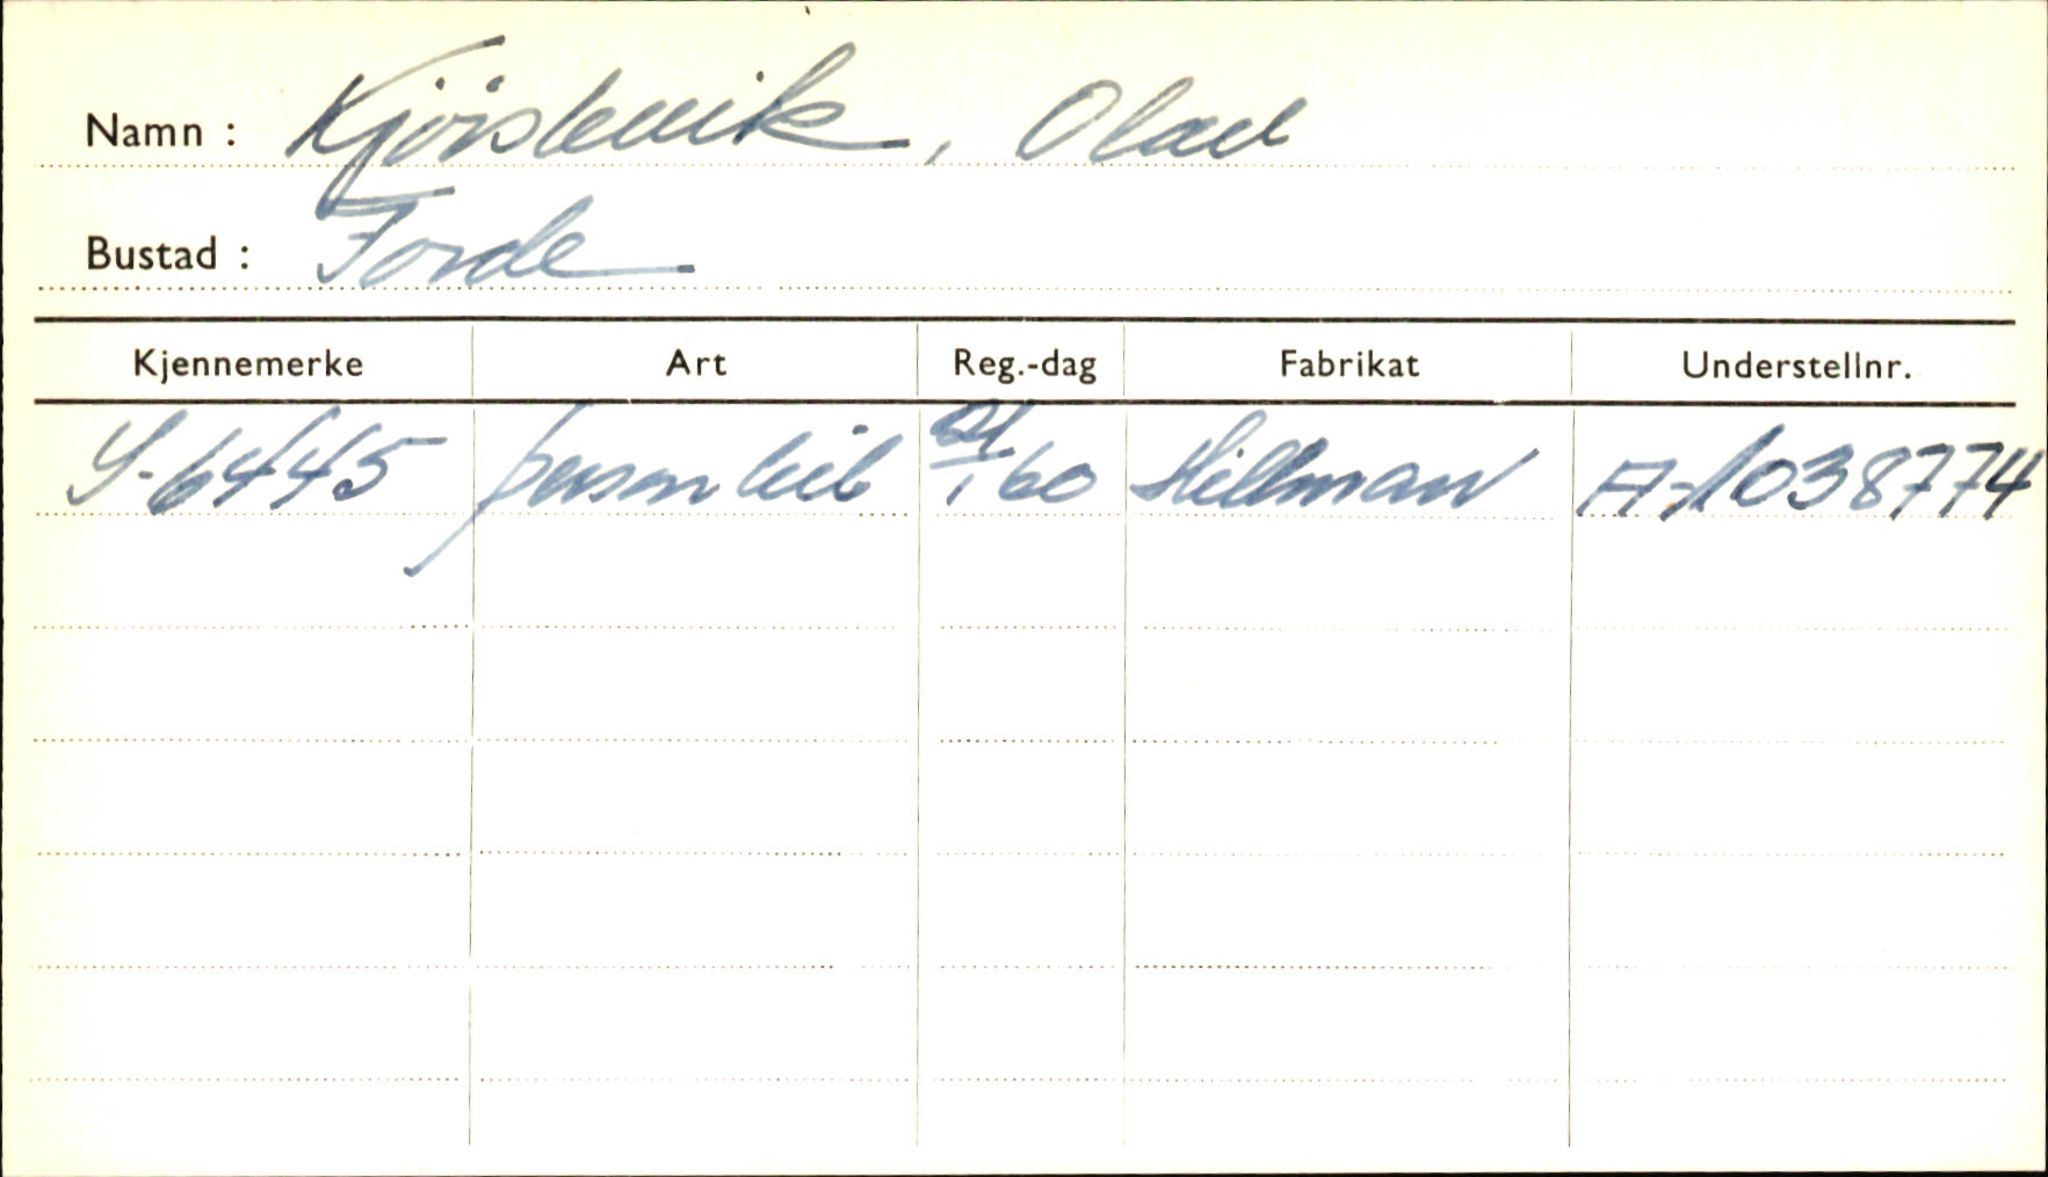 Namn : Kjörslevik, Olav
Bustad : Førde
Kjennemerke Art Reg.-dag Fabrikat Understellnr.
S-6445 personbil 21/1 60 Hillman A-1038774